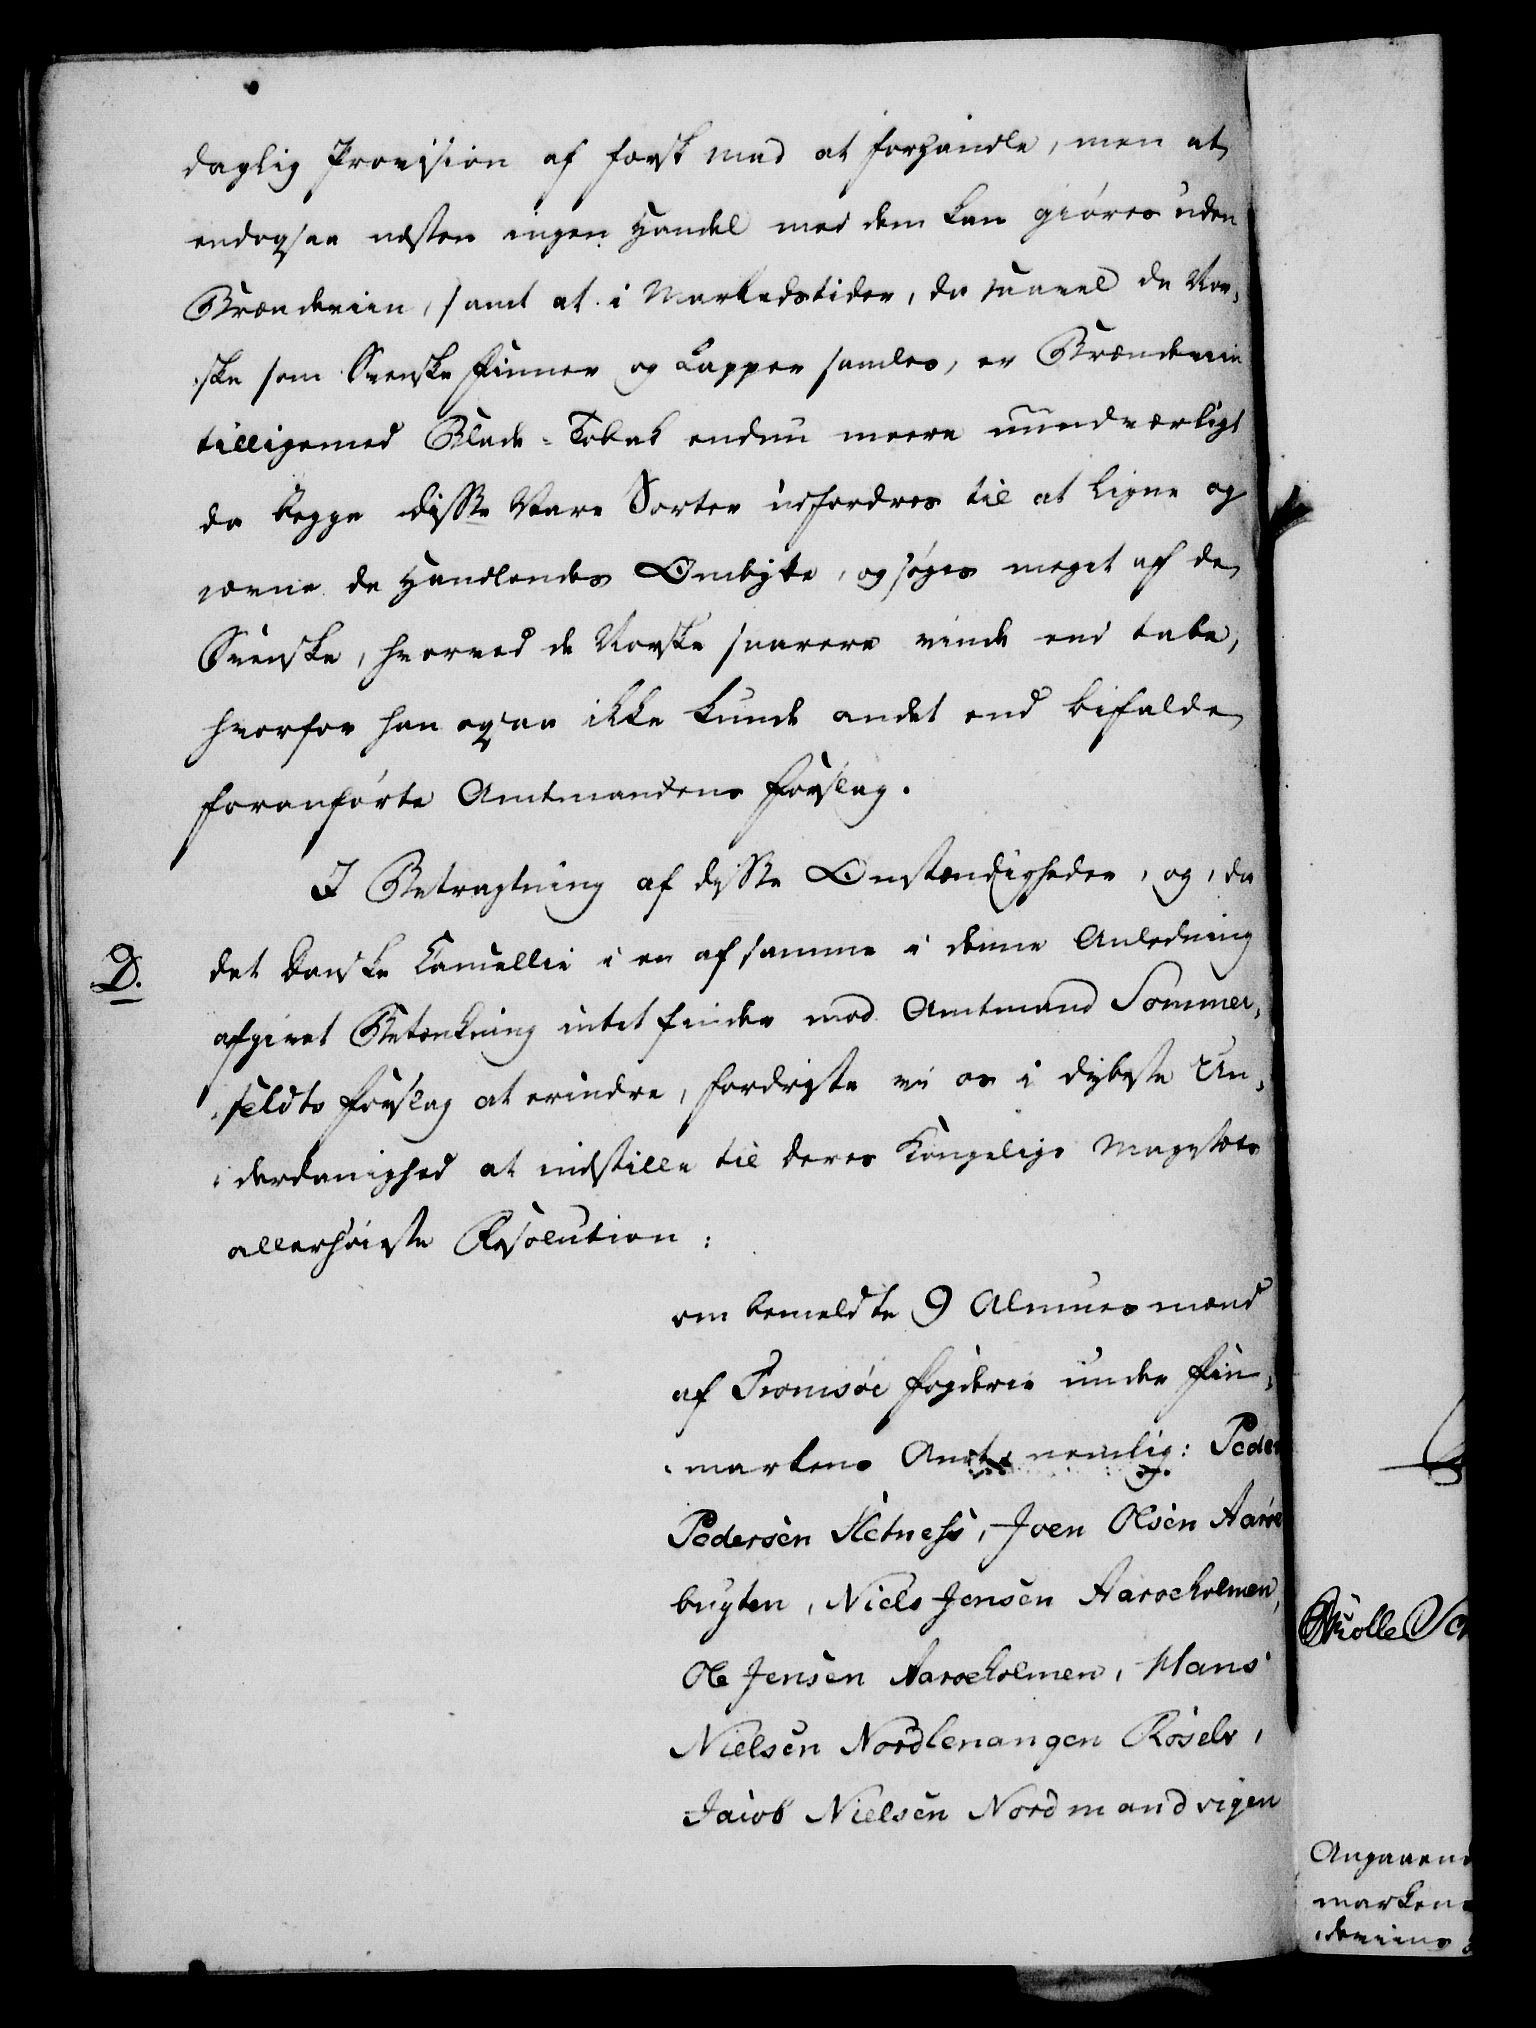 daglig Provision af fersk mad at forhandle, men at
endogsaa næsten ingen Handel med dem kan giøres uden
Brændeviin, samt at i Markedstider, da saavel de Nor-
ske som Svenske Finner og Lapper samles, er Brændeviin
tilligemed Blade-Tobak endnu meere uundværligt
da begge disse Vare Sorter udfordres til at ligne og
jævne de Handlendes Ombytte, og søges meget af de
Svenske, hvorved de Norske snarere vinde end tabe,
hvorfor han ogsaa ikke kunde andet end bifalde
foranførte Amtmandens Forslag.
I Betragtning af disse Omstændigheder, og, da
D.
det danske Cancellie i en af samme i denne Anledning
afgivet Betænkning intet finder mod Amtmand Sommer-
feldts Forslag at erindre, fordriste vi os i dybeste Un-
derdanighed at indstille til Deres Kongelige Majestæts
allerhøieste Resolution:
om bemeldte 9 Almuesmænd
af Tromsøe Fogderie under Fin-
markens Amt nemlig: Peder
Pedersen Sletness, Joen Olsen Aaröe
bugten, Niels Jensen Aaroeholmen,
Ole Jensen Aaroeholmen, Hans
Nielsen Nordlenangen Röselv,
Jacob Nielsen Nordmandvigen
Angaaen
marken
deviins